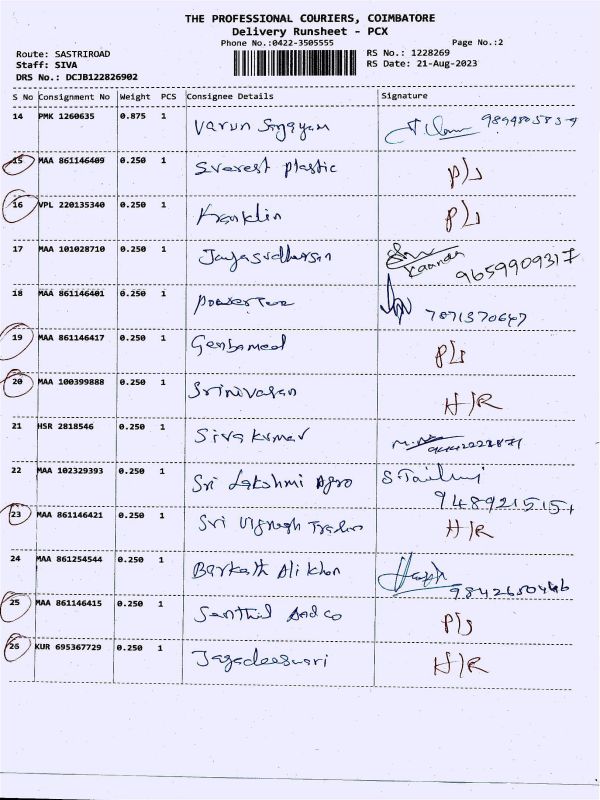 THE PROFESSIONAL COURIERS, COIMBATORE
Delivery Runsheet - PCX
Phone No.:0422-3505555 Page No.:2
Route: SASTRIROAD RS No.: 1228269
Staff: SIVA RS Date: 21-Aug-2023
DRS No.: DCJB122826902
S No Consignment No Weight PCS Consignee Details Signature
14 PMK 1260635 0.875 1 Varun
15 MAA 861146409 0.250 1 Everest plastic P/J
16 VPL 220135340 0.250 1 Franklin P/J
17 MAA 101028710 0.250 1 Jayasudharsan
9659909317
18 MAA 861146401 0.250 1
7871370647
19 MAA 861146417 0.250 1 P/J
20 MAA 100399888 0.250 1 Srinivasan H/R
21 HSR 2818546 0.250 1 Siva Kumar
22 MAA 102329393 0.250 1 Sri Lakshmi Agro
23 MAA 861146421 0.250 1 Sri Vignesh Traders H/R
24 MAA 861254544 0.250 1 Barkath Ali Khan
25 MAA 861146415 0.250 1 Senthil And co P/J
26 KUR 695367729 0.250 1 Jagadeeswari H/R